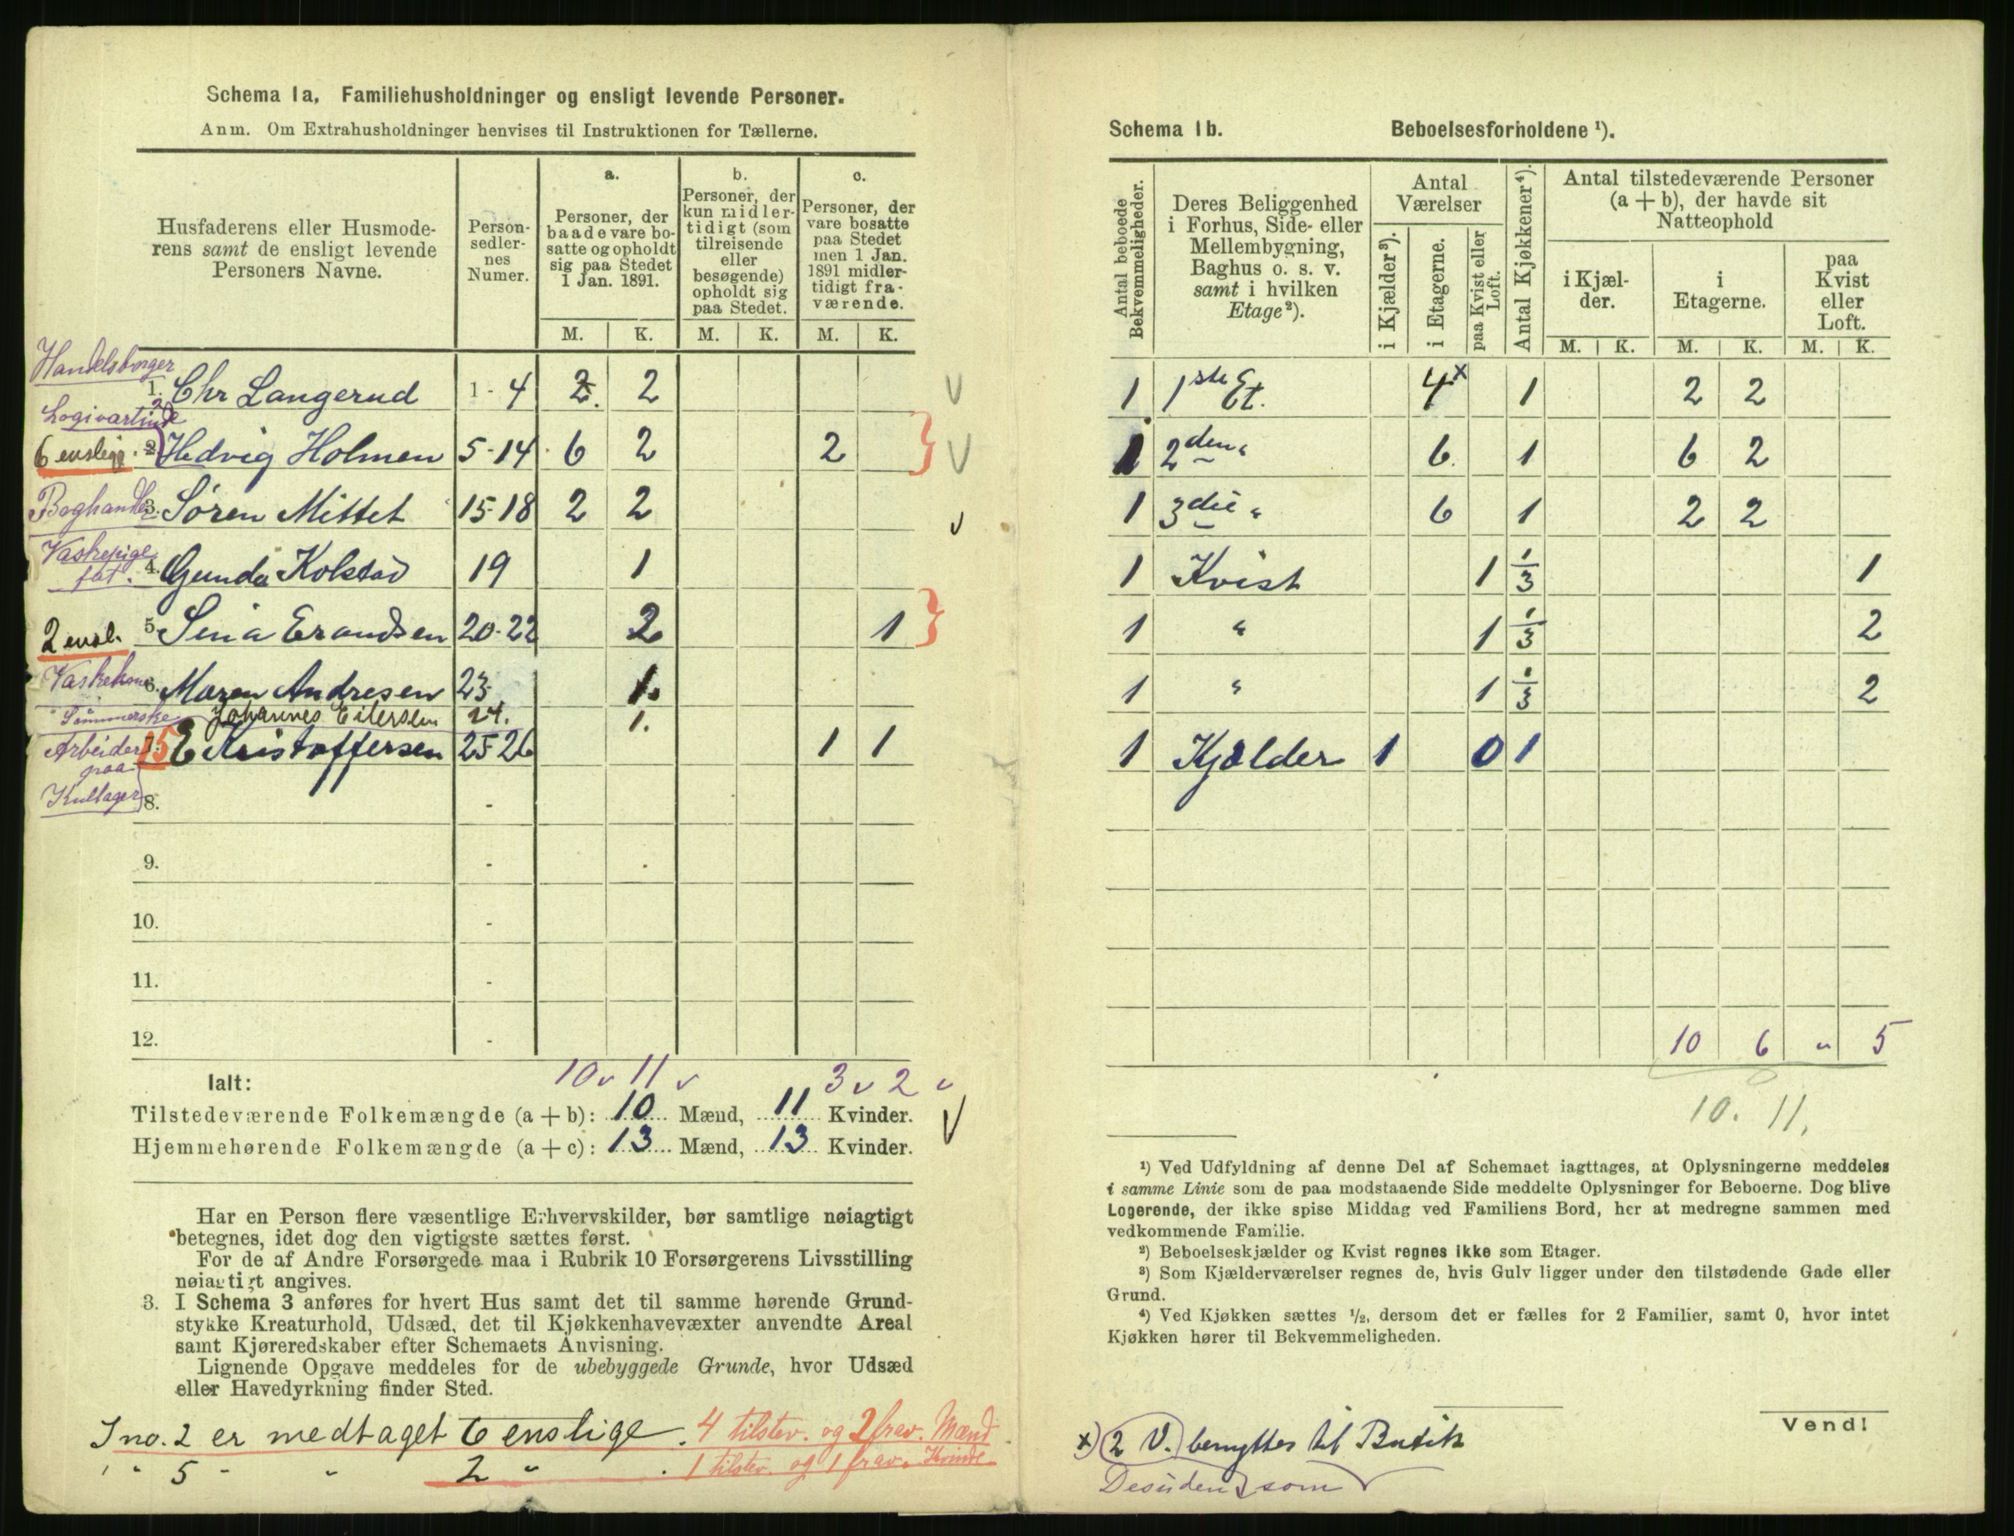 Schema 1a. Familiehusholdninger og ensligt levende Personer.
Anm. Om Extrahusholdninger henvises til Instruktionen for Tællerne.
Husfaderens eller Husmode-
rens samt de ensligt levende
Personers Navne.
Person-
sedler-
nes
Numer.
a.
Personer, der
baade vare bo-
satte og opholdt
sig paa Stedet
1 Jan. 1891.
b.
Personer, der
kun midler-
tidigt (som
tilreisende
eller
besøgende)
opholdt sig
paa Stedet.
c.
Personer, der
vare bosatte
paa Stedet
men 1 Jan.
1891 midler-
tidigt fra-
værende.
M. K. M. K. M. K.
Handelsborger
1. Chr Langerud 1-4 2. 2
Logivertinde
6 enslige. 2. Hedvig Holmen 5-14 6 2 2
Boghandler 3. Søren Mittet 15-18 2 2
Vaskepige
fat. 4. Gunda Kolstad 19 1
2 ensl. 5. Sina Erandsen 20-22 2 1
Vaskekone 6. Maren Andresen 23 1.
Sømmerske Johannes Eilersen 24. 1.
Arbeider 7. 15 E Kristoffersen 25-26 1 1
paa
Kullager 8. -
9. -
10. -
11. -
12. -
Ialt: 10 v 11 v 3 v 2 v
Tilstedeværende Folkemængde (a + b): 10 Mænd, 11 Kvinder.
Hjemmehørende Folkemængde (a + c): 13 Mænd, 13 Kvinder.
Har en Person flere væsentlige Erhvervskilder, bør samtlige nøiagtigt
betegnes, idet dog den vigtigste sættes først.
For de af Andre Forsørgede maa i Rubrik 10 Forsørgerens Livsstilling
nøiagtigt angives.
3. I Schema 3 anføres for hvert Hus samt det til samme hørende Grund-
stykke Kreaturhold, Udsæd, det til Kjøkkenhavevæxter anvendte Areal
samt Kjøreredskaber efter Schemaets Anvisning.
Lignende Opgave meddeles for de ubebyggede Grunde, hvor Udsæd
eller Havedyrkning finder Sted.
I no. 2 er medtaget 6 enslige. 4 tilstev. og 2 frav. Mænd
" " 5 " " 2 " . 1 tilstev. og 1 frav. Kvinde
Schema 1b. Beboelsesforholdene ¹).
Antal beboede
Bekvemmeligheder.
Deres Beliggenhed
i Forhus, Side- eller
Mellembygning,
Baghus o. s. v.
samt i hvilken
Etage²).
Antal
Værelser
i Kjælder³).
i Etagerne.
paa Kvist eller
Loft.
Antal Kjøkkener⁴).
Antal tilstedeværende Personer
(a + b), der havde sit
Natteophold
i Kjæl-
der.
i
Etagerne.
paa
Kvist
eller
Loft.
M. K. M. K. M. K.
1 1ste Et. 4x 1 2 2
1 2den " 6. 1 6 2
1 3die " 6 1 2 2
1 Kvist 1 1/3 1
1 " 1 1/3 2
1 " 1 1/3 2
1 Kjælder 1 0 1
10 6 " 5
10. 11.
¹) Ved Udfyldning af denne Del af Schemaet iagttages, at Oplysningerne meddeles
i samme Linie som de paa modstaaende Side meddelte Oplysninger for Beboerne. Dog blive
Logerende, der ikke spise Middag ved Familiens Bord, her at medregne sammen med
vedkommende Familie.
²) Beboelseskjælder og Kvist regnes ikke som Etager.
³) Som Kjælderværelser regnes de, hvis Gulv ligger under den tilstødende Gade eller
Grund.
⁴) Ved Kjøkken sættes ¹/₂, dersom det er fælles for 2 Familier, samt 0, hvor intet
Kjøkken hører til Bekvemmeligheden.
Vend!
x) 2 V. benyttes til Butik
Desuden som